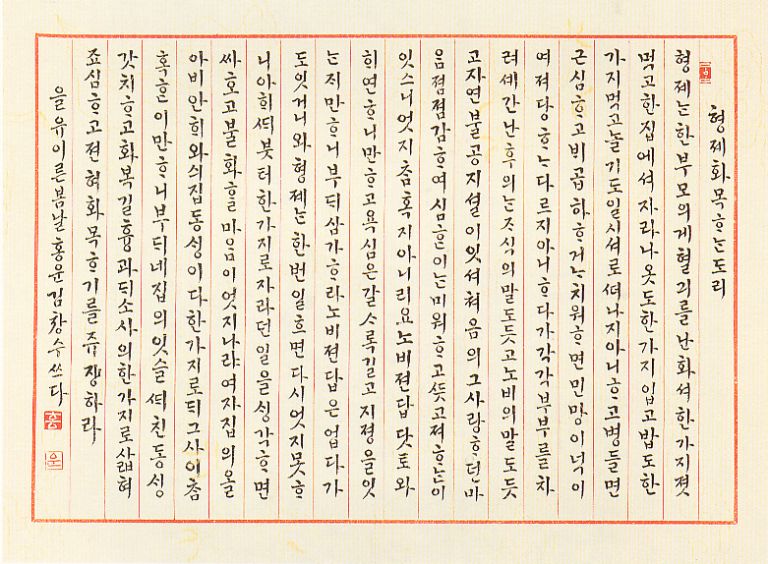 형제화목ᄒᆞᄂᆞᆫ도리
형제ᄂᆞᆫ한부모의게혈긔를난화셔한가지졋
먹고한집에셔자라나옷도한가지입고밥도한
가지먹고놀기도일시셔로ᄯᅥ나지아니ᄒᆞ고병들면
근심ᄒᆞ고ᄇᆡ곱하ᄒᆞ거ᄂᆞ치워ᄒᆞ면민망이넉이
여져당ᄒᆞᄂᆞᆫ다르지아니ᄒᆞ다가각각부부를차
려셰간난후의ᄂᆞᆫᄌᆞ식의말도듯고노비의말도듯
고자연불공지셜이잇셔쳐음의그사랑ᄒᆞ던마
음졈졈감ᄒᆞ여심ᄒᆞᆫ이ᄂᆞᆫ미워ᄒᆞ고ᄯᅳᆺ고져ᄒᆞᄂᆞᆫ이
잇스니엇지참혹지아니리요노비젼답닷토와
ᄒᆡ연ᄒᆞ니만ᄒᆞ고욕심은갈ᄉᆞ록길고지졍을잇
ᄂᆞᆫ지만ᄒᆞ니부ᄃᆡ삼가ᄒᆞ라노비젼답은업다가
도잇거니와형제ᄂᆞᆫ한번일흐면다시엇지못ᄒᆞ
니아희ᄯᅢ붓터한가지로자라던일을ᄉᆡᆼ각ᄒᆞ면
싸호고불화ᄒᆞᆯ마음이엇지나랴여자집의올
아비안희와싀집동ᄉᆡᆼ이다한가지로ᄃᆡ그사이참
혹ᄒᆞᆫ이만ᄒᆞ니부ᄃᆡ네집의잇슬ᄯᅢ친동ᄉᆡᆼ
갓치ᄒᆞ고화복길흉과ᄃᆡ소사의한가지로삷혀
죠심ᄒᆞ고젼혀화목ᄒᆞ기를쥬쟝하라
을유이른봄날홍운김창수쓰다